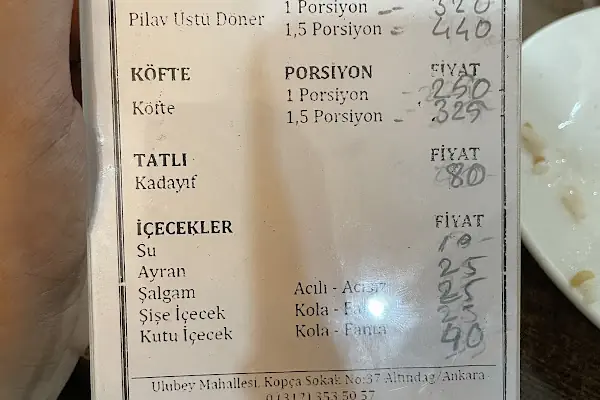 1 Porsiyon - 320
Pilav Üstü Döner 1,5 Porsiyon - 440
KÖFTE PORSİYON FİYAT
1 Porsiyon 250
Köfte
1,5 Porsiyon - 325
TATLI FİYAT
Kadayıf 80
İÇECEKLER FİYAT
Su 10-
Ayran 25
Şalgam Acılı - Acısız 25
Şişe İçecek Kola - Fanta
Kutu İçecek Kola - Fanta 40
Ulubey Mahallesi. Kopça Sokak No:37 Altındağ/Ankara
0 (312) 353 50 57